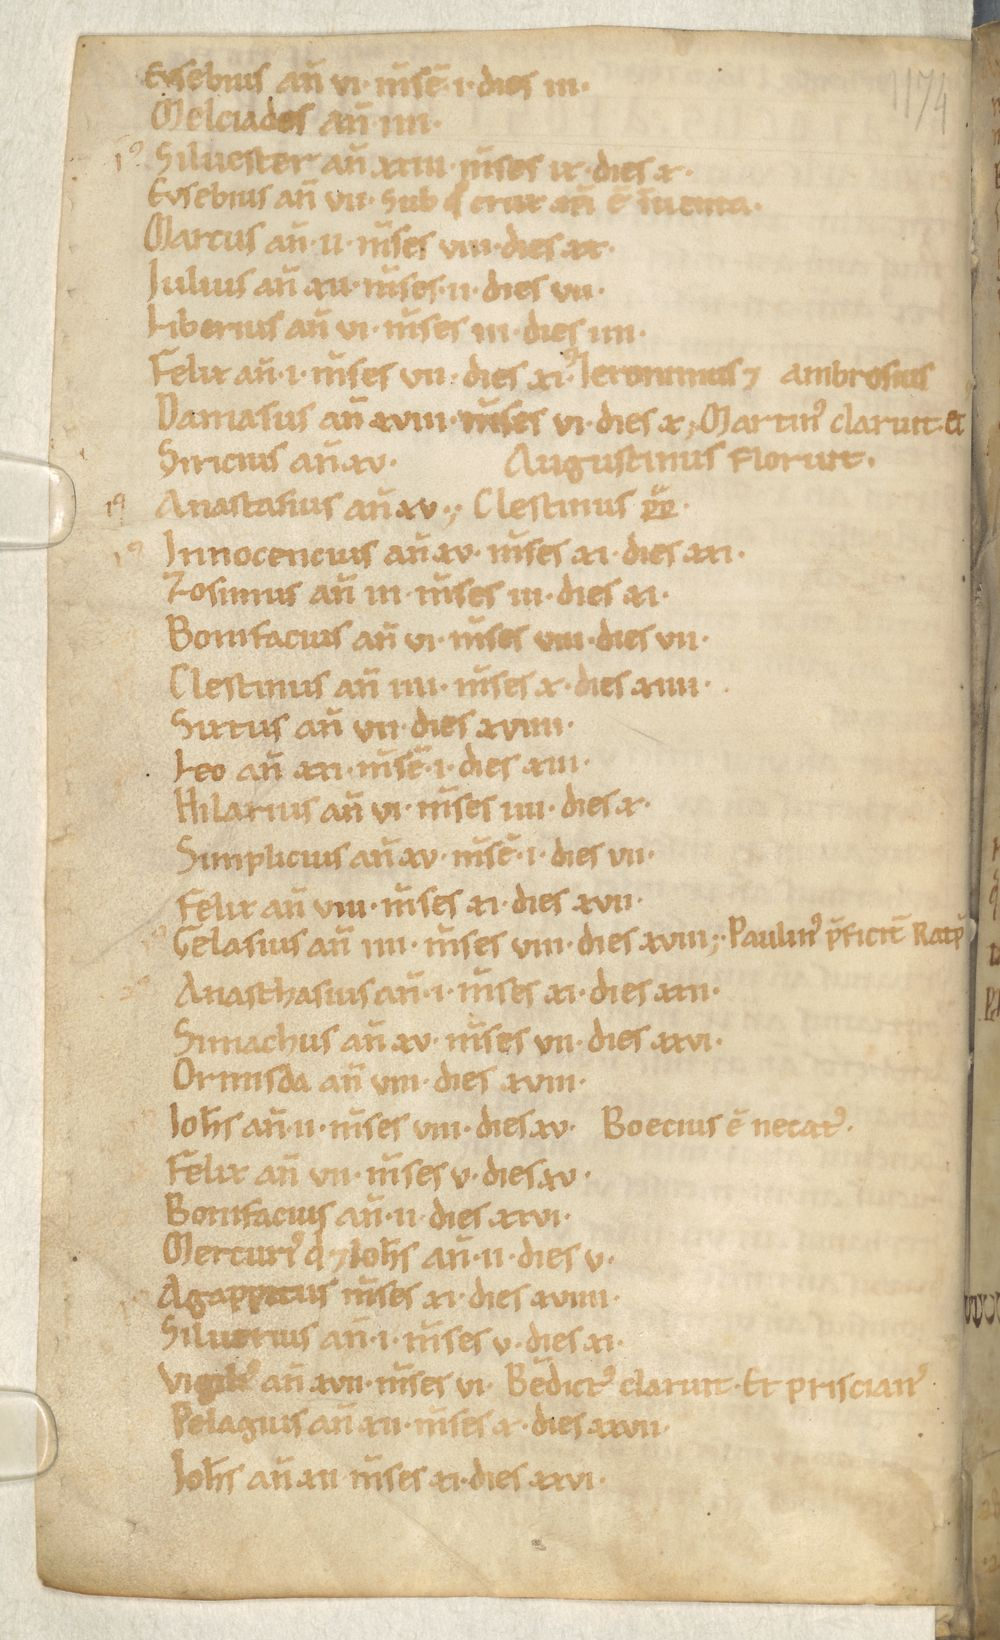 Eusebius an̄ vi · m̄sē · i · dies iii ·
Melciades an̄ iiii ·
Siluester an̄ xxiii · m̄ses ix · dies x ·
Eusebius an̄ vii · sub q̄ crux xp̄i ē īuenta ·
Marcus an̄ · ii · m̄ses viii · dies xx ·
Iulius an̄ xii · m̄ses · ii · dies vii ·
Liberius an̄ vi · m̄ses iii · dies iiii ·
Felix an̄ · i · m̄ses vii · dies xi · Ieronimus ⁊ ambrosius
Damasus an̄ xviii · m̄ses vi · dies x ; Martin᾽ claruit · et
Siricius an̄ xv · Augustinus floruit ·
Anastasius an̄ xv · ; Clestinus
Innocencius an̄ xv · m̄ses xi · dies xxi ·
Zosimus an̄ iii · m̄ses iii · dies xi ·
Bonifacius an̄ vi · m̄ses viii · dies vii ·
Clestinus an̄ iiii · m̄ses x · dies xiiii ·
Sixtus an̄ vii · dies xviiii ·
Leo an̄ xxi · m̄sē · i · dies xiii ·
Hilarius an̄ vi · m̄ses iiii · dies x ·
Simplicius an̄ xv · m̄sē · i · dies vii ·
Felix an̄ viii · m̄ses xi · dies xvii ·
Gelasius an̄ iiii · m̄ses viii · dies xviii ; · Paulin᾽ p̄ficit᷑
Anasthasius an̄ · i · m̄ses xi · dies xxii ·
Simachus an̄ xv · m̄ses vii · dies xxvi ·
Ormisda an̄ viii · dies xviii ·
Ioh̄s an̄ · ii · m̄ses viii · dies xv · Boecius ē necat᾽ ·
Felix an̄ vii · m̄ses v · dies xv ·
Bonifacius an̄ · ii · dies xxvi ·
Mercuri᾽ q · ⁊ Ioh̄s an̄ · ii · dies v ·
Agappitus m̄ses xi · dies xviiii ·
Siluerius an̄ · i · m̄ses v · dies xi ·
Vigili᾽ an̄ xvii · m̄ses vi · Bēdict᾽ claruit · Et priscian᾽
Pelagius an̄ xii · m̄ses x · dies xxvii ·
Ioh̄s an̄ xii m̄ses xi · dies xxvi ·